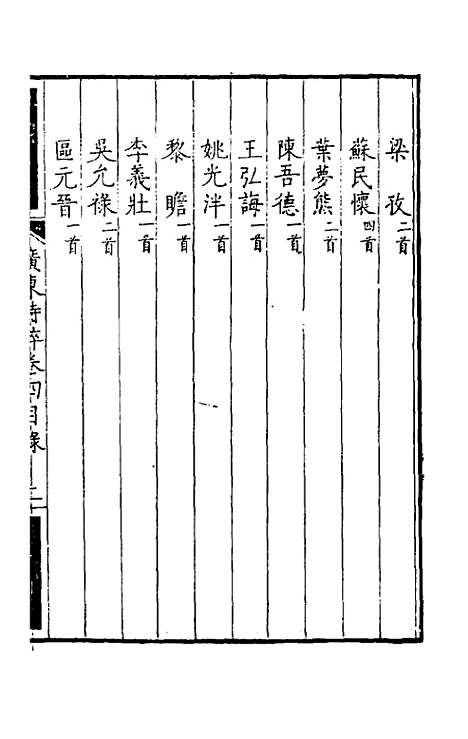 梁孜二首
蘇民懷四首
葉夢熊二首
陳吾德一首
王弘誨一首
姚光泮一首
黎瞻一首
李義壯一首
吳允祿二首
區元晉一首
廣東詩粹卷四目錄